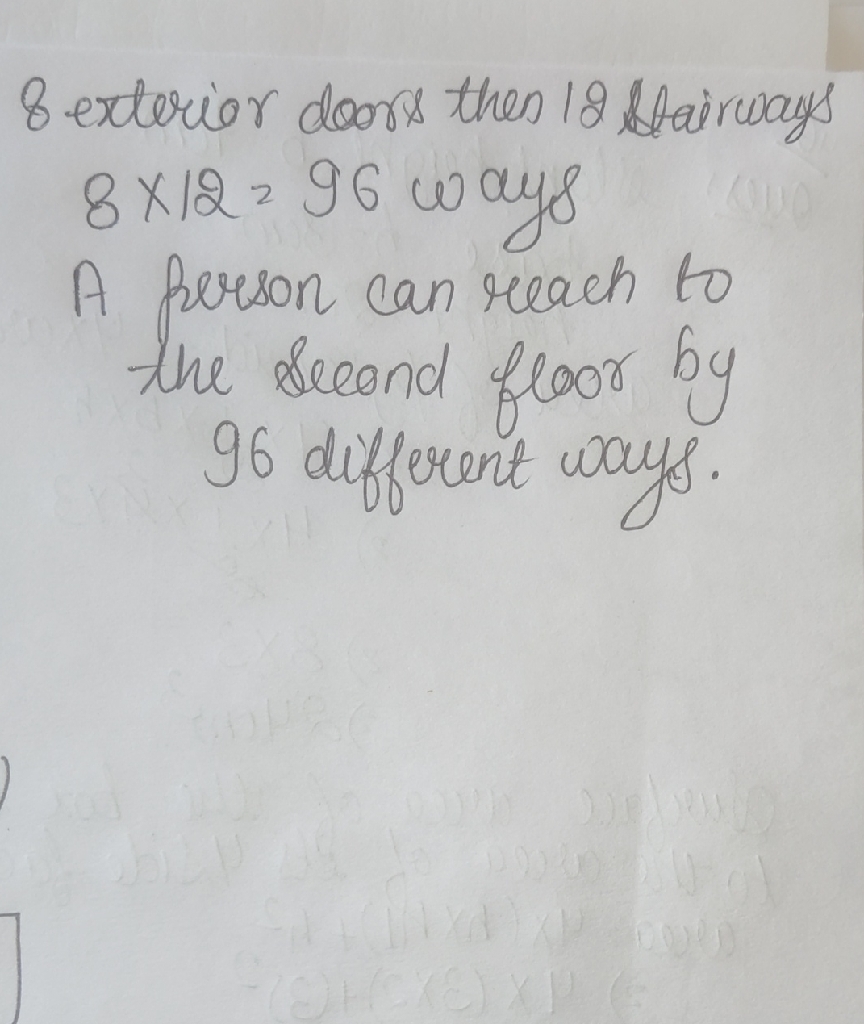 8 exterior doors then 12 stairways
8 X 12 = 96 ways
A person can reach to
the second floor by
96 different ways.